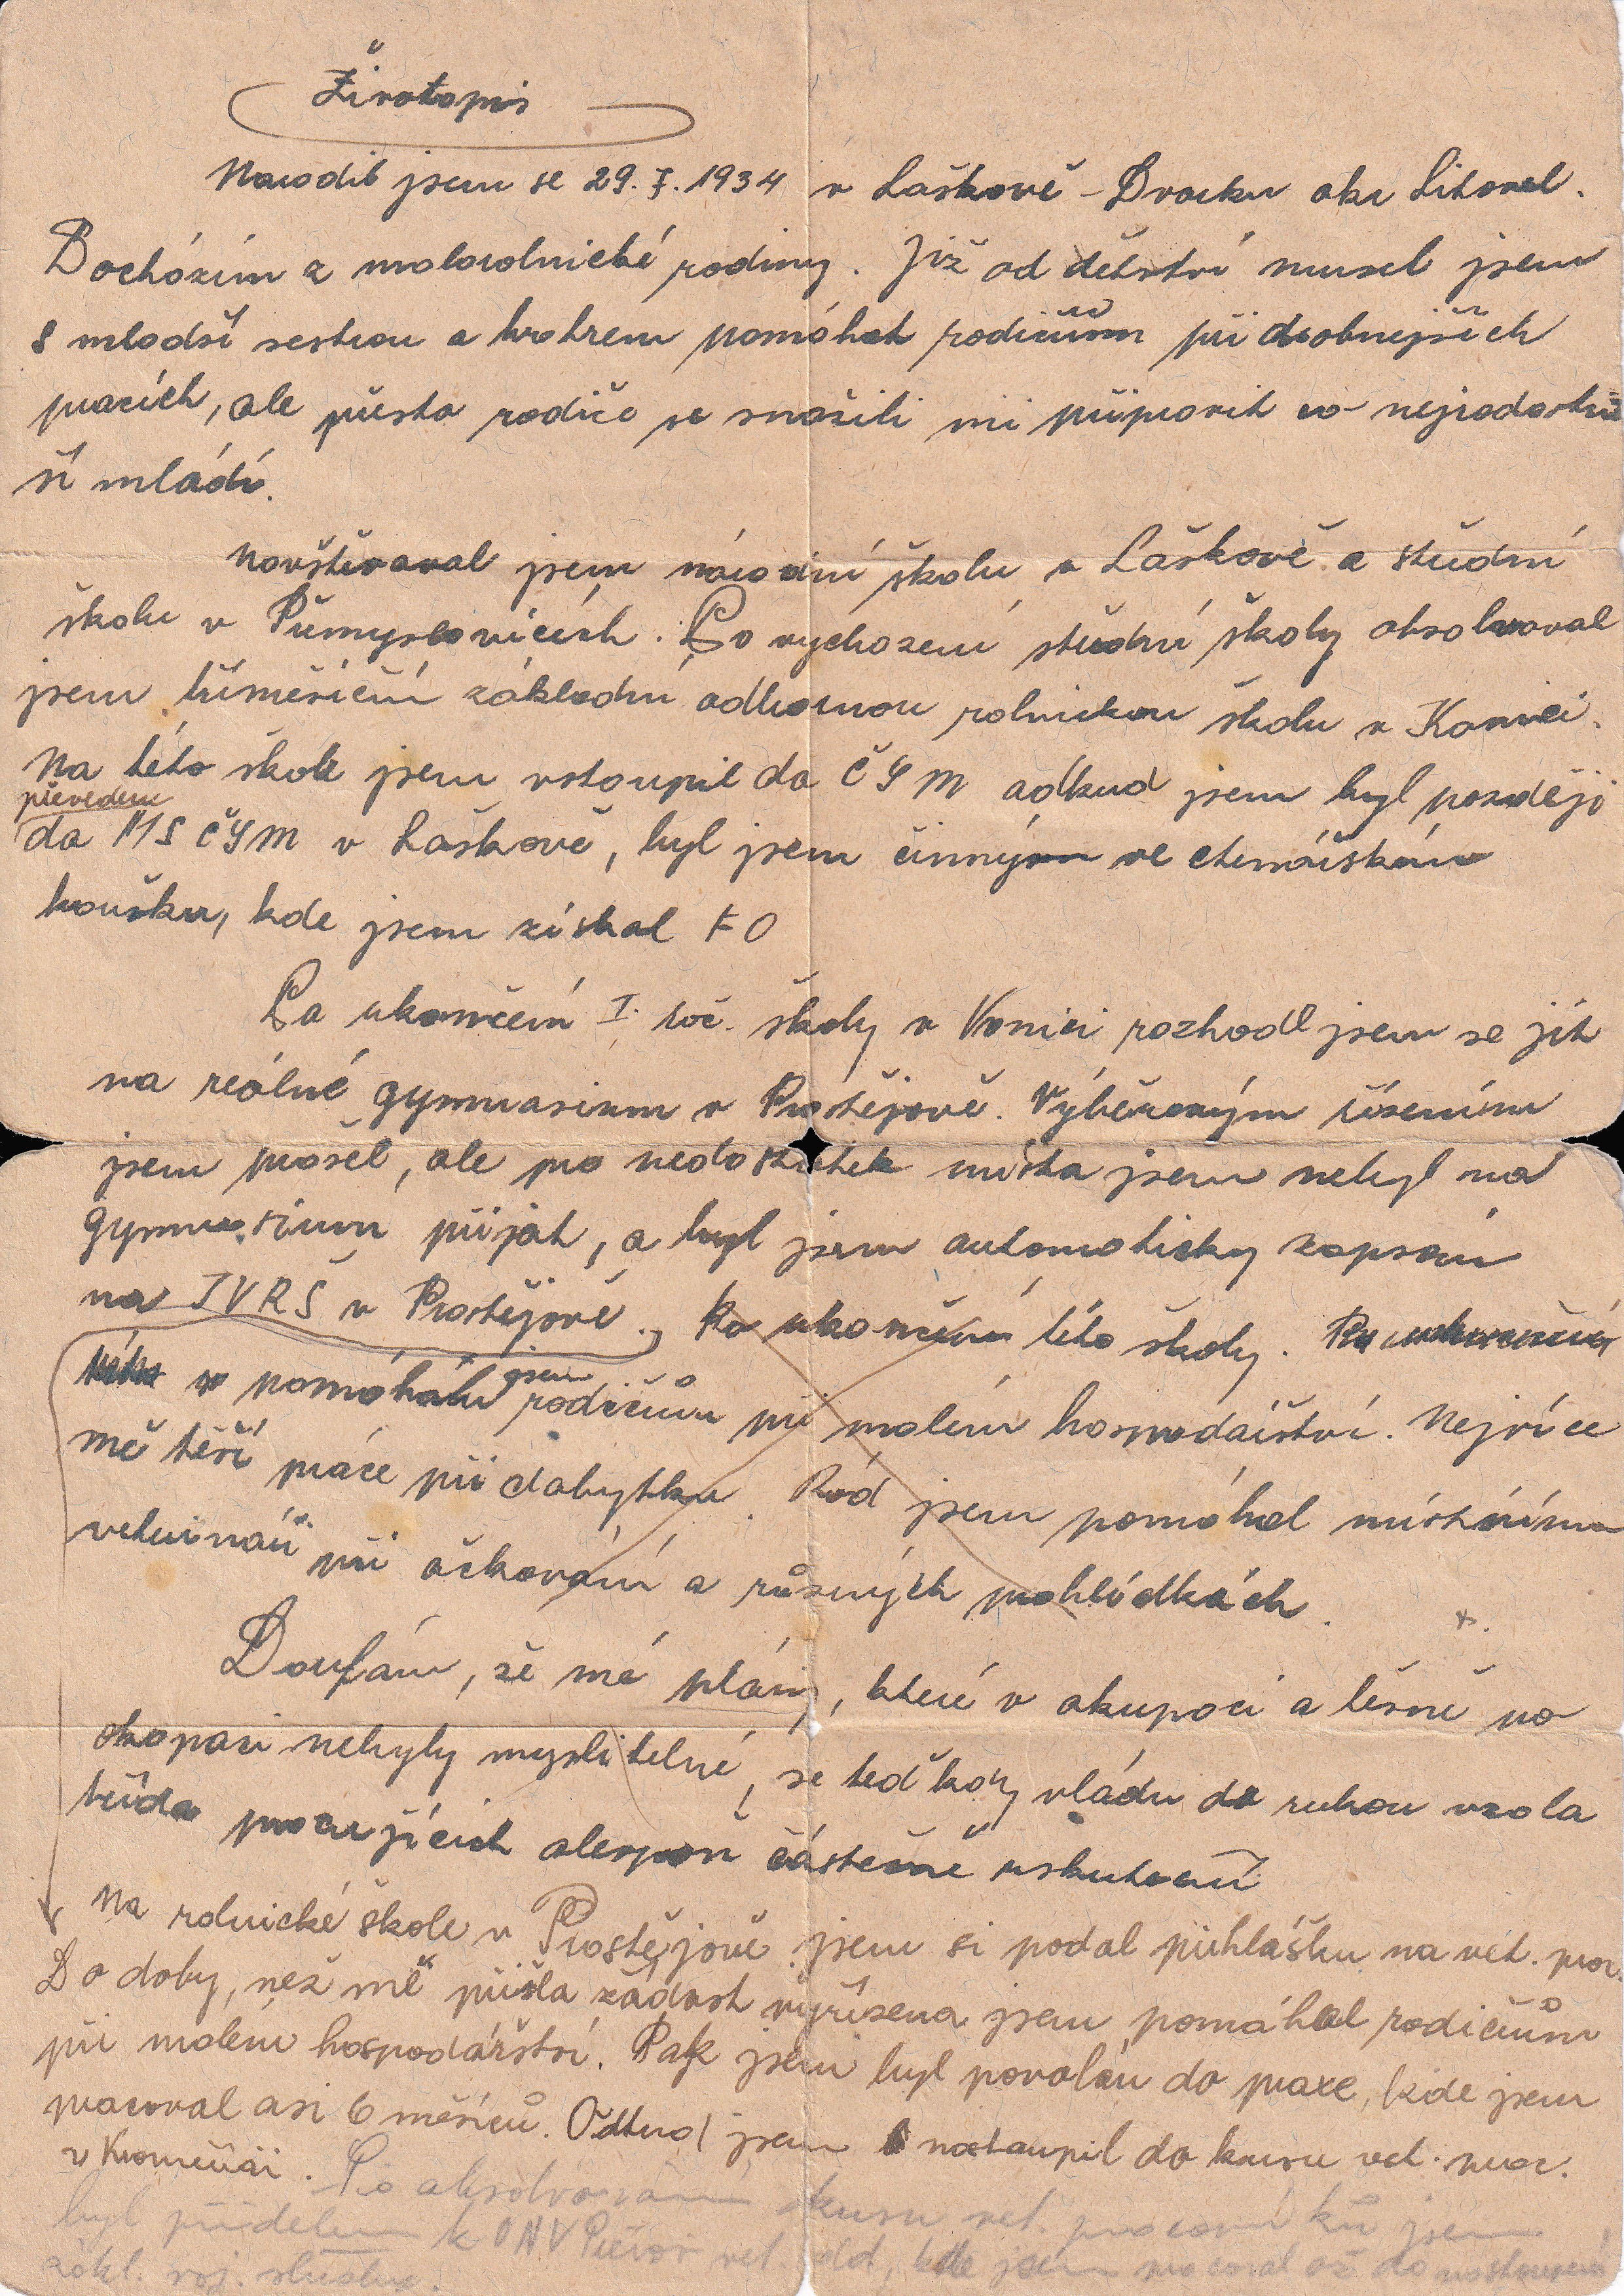 Životopis
Narodil jsem se 29. I. 1934 v Laškově - Dvorku okr Litovel.
Pocházím z malorolnické rodiny. Již od dětství musel jsem
s mladší sestrou a bratrem pomáhat rodičům při drobnejších
pracích, ale přesto rodiče se snažili mi připravit co nejradostněj
ší mládí.
Navštěvoval jsem národní školu v Laškově a střední
školu v Přemyslovicích. Po vychození střední školy absolvoval
jsem tříměsíční základní odbornou rolnickou školu v Konici.
Na této škole jsem vstoupil do ČSM odkud jsem byl později
převeden
do MS ČSM v Laškově, byl jsem činným ve čtenářském
kroužku, kde jsem získal FO
Po ukončení I. roč. školy v Konici rozhodl jsem se jít
na reálné gymnasium v Prostějově. Výběrovým řízením
jsem prošel, ale pro nedostatek místa jsem nebyl na
gymnasium přijat, a byl jsem automaticky zapsán
na JVRŠ v Prostějově. Po ukončení této školy.
pomáhal jsem rodičům při malém hospodářství. Nejvíce
mě těší práce při dobytku. Rád jsem pomáhal místnímu
veterináři při očkování a různých prohlídkách.
Doufám, že mé plány, které v okupaci a těsně po
okupaci nebyly myslitelné, se teď kdy vládu do rukou vzala
třída pracujících alespoň částečně uskuteční
Na rolnické škole v Prostějově jsem si podal přihlášku na vet. prac.
Do doby, než mě přišla žádost vyřízena jsem pomáhal rodičům
při malém hospodářství. Pak jsem byl povolán do praxe, kde jsem
pracoval asi 6 měsíců. Odtud jsem nastoupil do kursu vet. prac.
v Kroměříži. Po absolvování kursu vet. pracovníků jsem
byl přidělen k ONV Přerov vet. odd, kde jsem pracoval až do nastoupení
zákl. voj. služby.